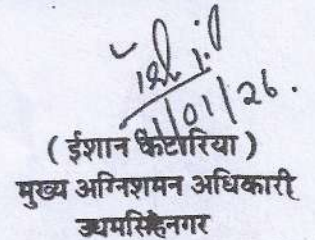 /01/26.
( ईशान कटारिया )
मुख्य अग्निशमन अधिकारी
उधमसिंहनगर